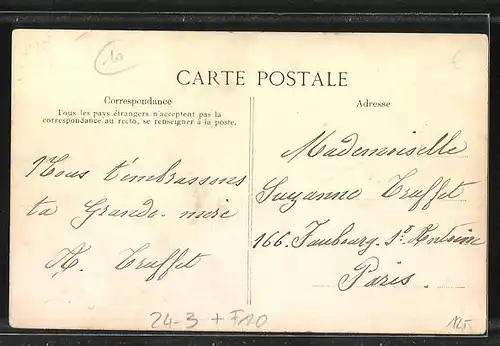 10
CARTE POSTALE
Correspondance
Tous les pays étrangers n'acceptent pas la
correspondance au recto, se renseigner à la poste.
Adresse
Nous t'embrassons
ta Grande-mère
A. Truffet
Mademoiselle
Suzanne Truffet
166. Faubourg St Antoine
Paris.
24-3 + F10